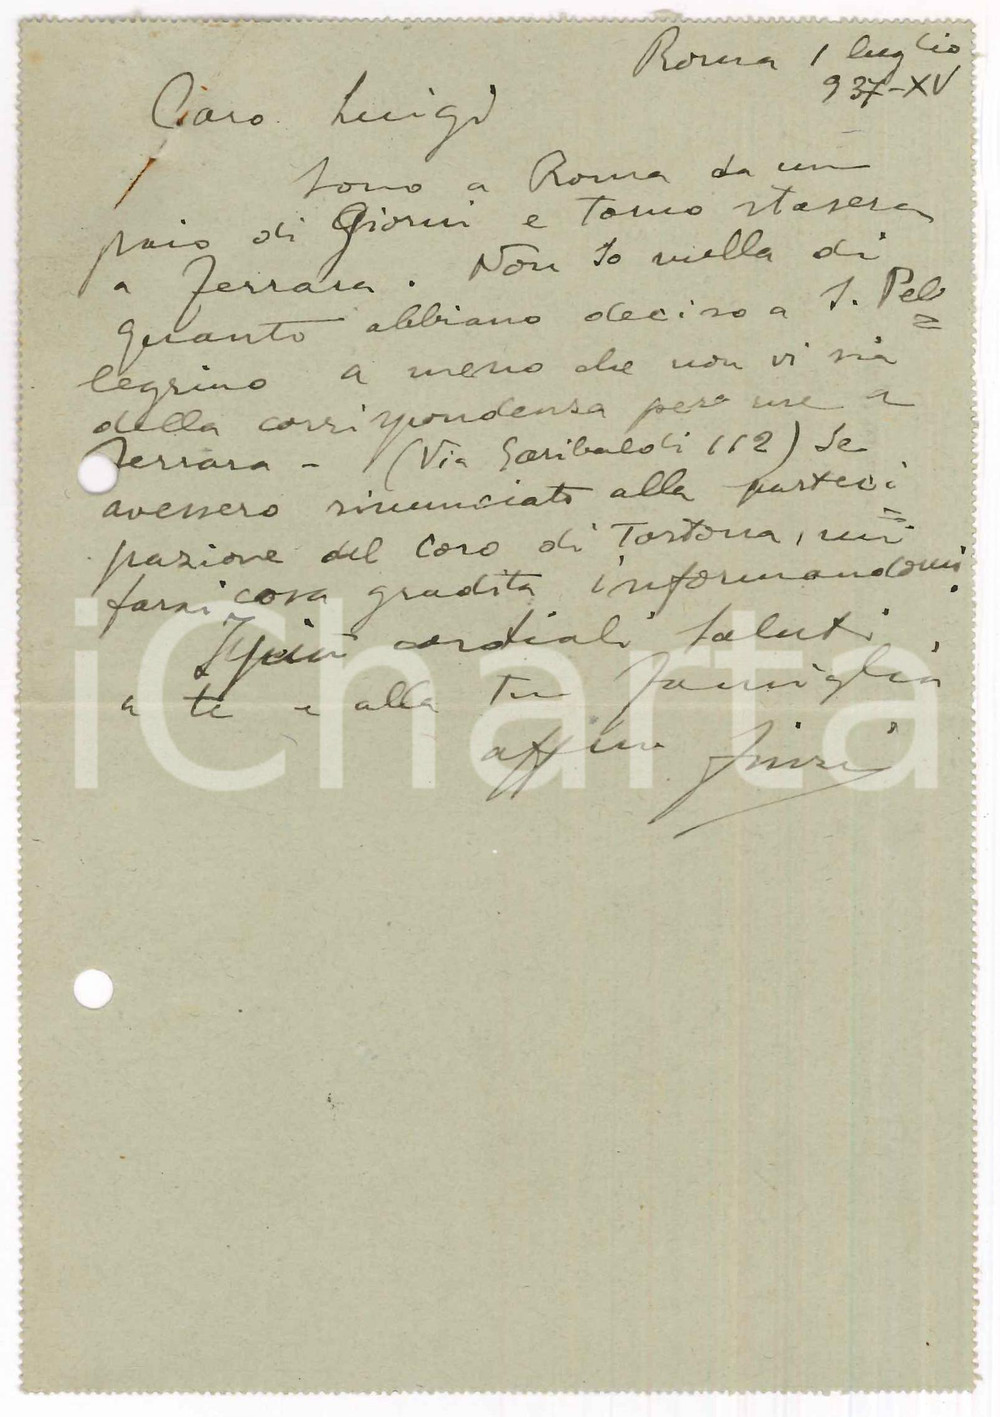 Roma 1 luglio
937-XV
Caro Luigi
Sono a Roma da un
paio di Giorni e torno stasera
a Ferrara. Non so nulla di
quanto abbiano deciso a S. Pel=
legrino a meno che non vi sia
della corrispondenza per me a
Ferrara - (Via Garibaldi 112) Se
avessero rinunciato alla parteci=
pazione del Coro di Tortona, mi
farai cosa gradita informandomi.
I più cordiali saluti,
a te e alla tua famiglia
aff.mo
iCharta